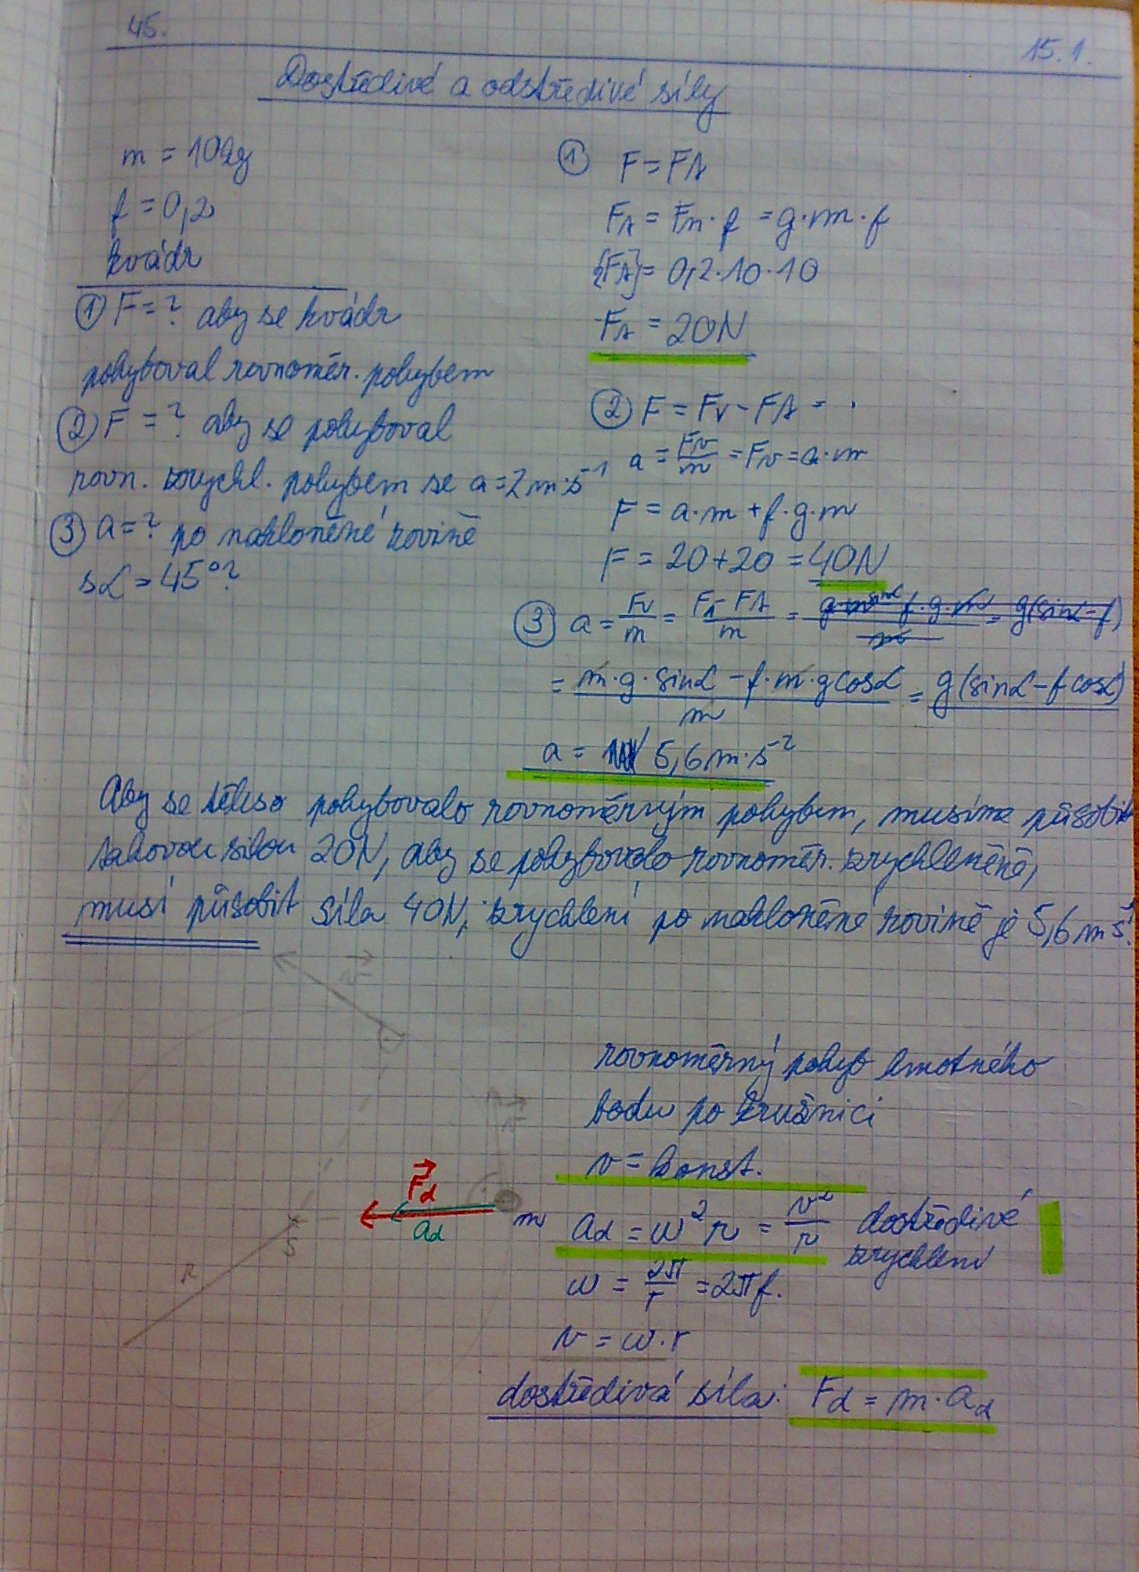 45.
15.1.
Dostředivé a odstředivé síly
m = 10kg
f = 0,2
kvádr
① F = ? aby se kvádr
pohyboval rovnoměr. pohybem
② F = ? aby se pohyboval
rovn. zrychl. pohybem se a = 2 m·s⁻¹
③ a = ? po nakloněné rovině
s α = 45°?
① F = Ft
Ft = Fn · f = g · m · f
{Ft} = 0,2 · 10 · 10
Ft = 20N
② F = Fv - Ft = .
a = Fv/m = Fv = a · m
F = a · m + f · g · m
F = 20 + 20 = 40N
③ a = Fv/m = F₁ - Ft/m = g · m sinα f · g · m/m = g(sinα - f)
= m · g · sinα - f · m · g cosα/m = g(sinα - f cosα)
a = 5,6 m·s⁻²
Aby se těleso pohybovalo rovnoměrným pohybem, musíme působit
tahovou silou 20N, aby se pohybovalo rovnoměr. zrychleněně,
musí působit síla 40N, zrychlení po nakloněné rovině je 5,6 m s⁻¹.
v
rovnoměrný pohyb hmotného
bodu po kružnici
v = konst.
v
Fd
ad
m
S
r
ad = ω² r = v²/r dostředivé
zrychlení
ω = 2π/T = 2πf.
v = ω · r
dostředivá síla: Fd = m · ad